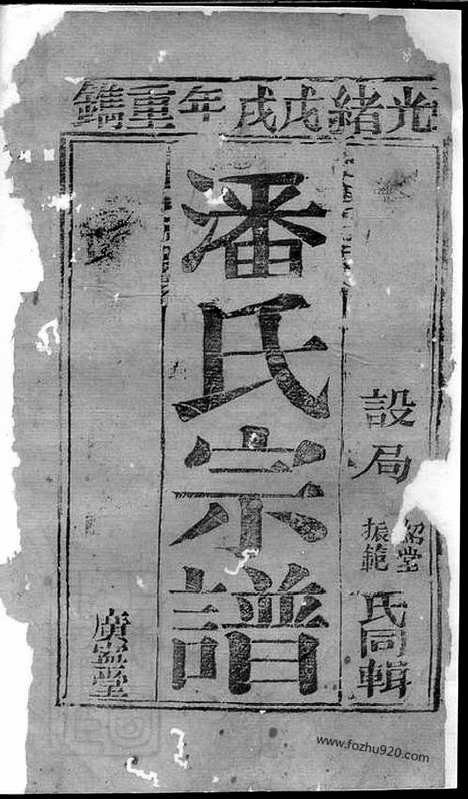 光緒戊戌年重鐫
設局
紹堂
振範
氏同輯
潘氏宗譜
廣宗堂
www.fozhu920.com